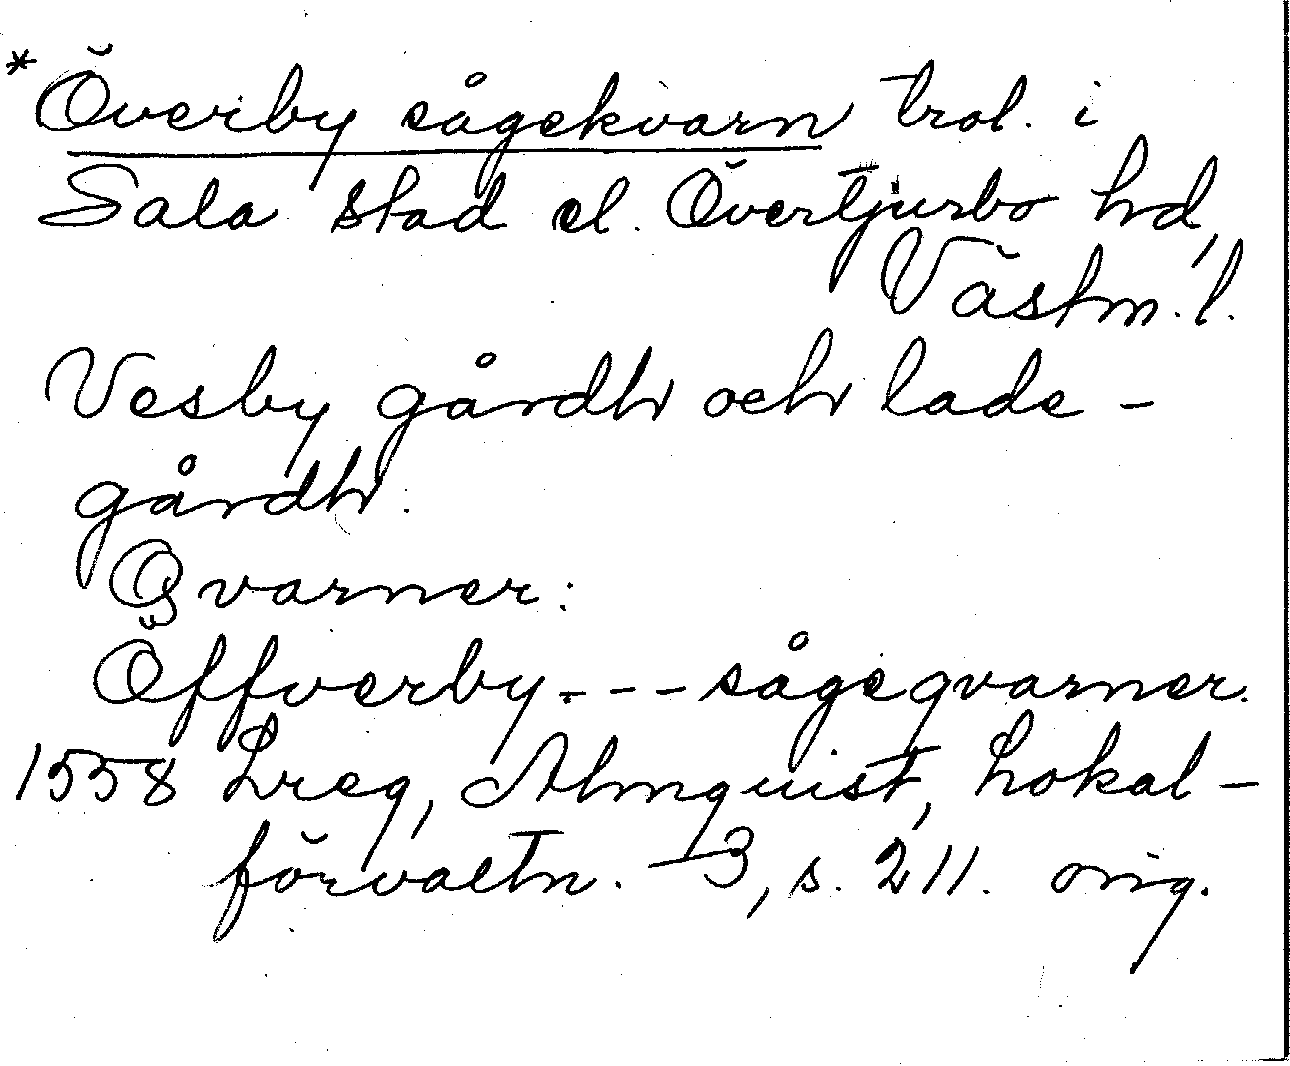 *Överby sågekvarn trol. i
Sala stad el. Övertjurbo hd,
Västm. l.
Vesby gårdh och lade-
gårdh.
Qvarner:
Öffverby - - - sågeqvarner.
1558 Lreg, Almquist, Lokal-
förvaltn. 3, s. 211. orig.